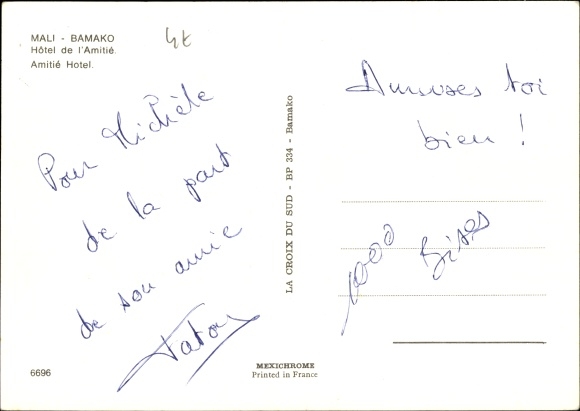 MALI - BAMAKO
Hôtel de l'Amitié.
Amitié Hotel.
4€
Pour Michèle
de la part
de son amie
LA CROIX DU SUD - BP 334 - Bamako
Amuses toi
bien !
1000 Bises
6696
MEXICHROME
Printed in France